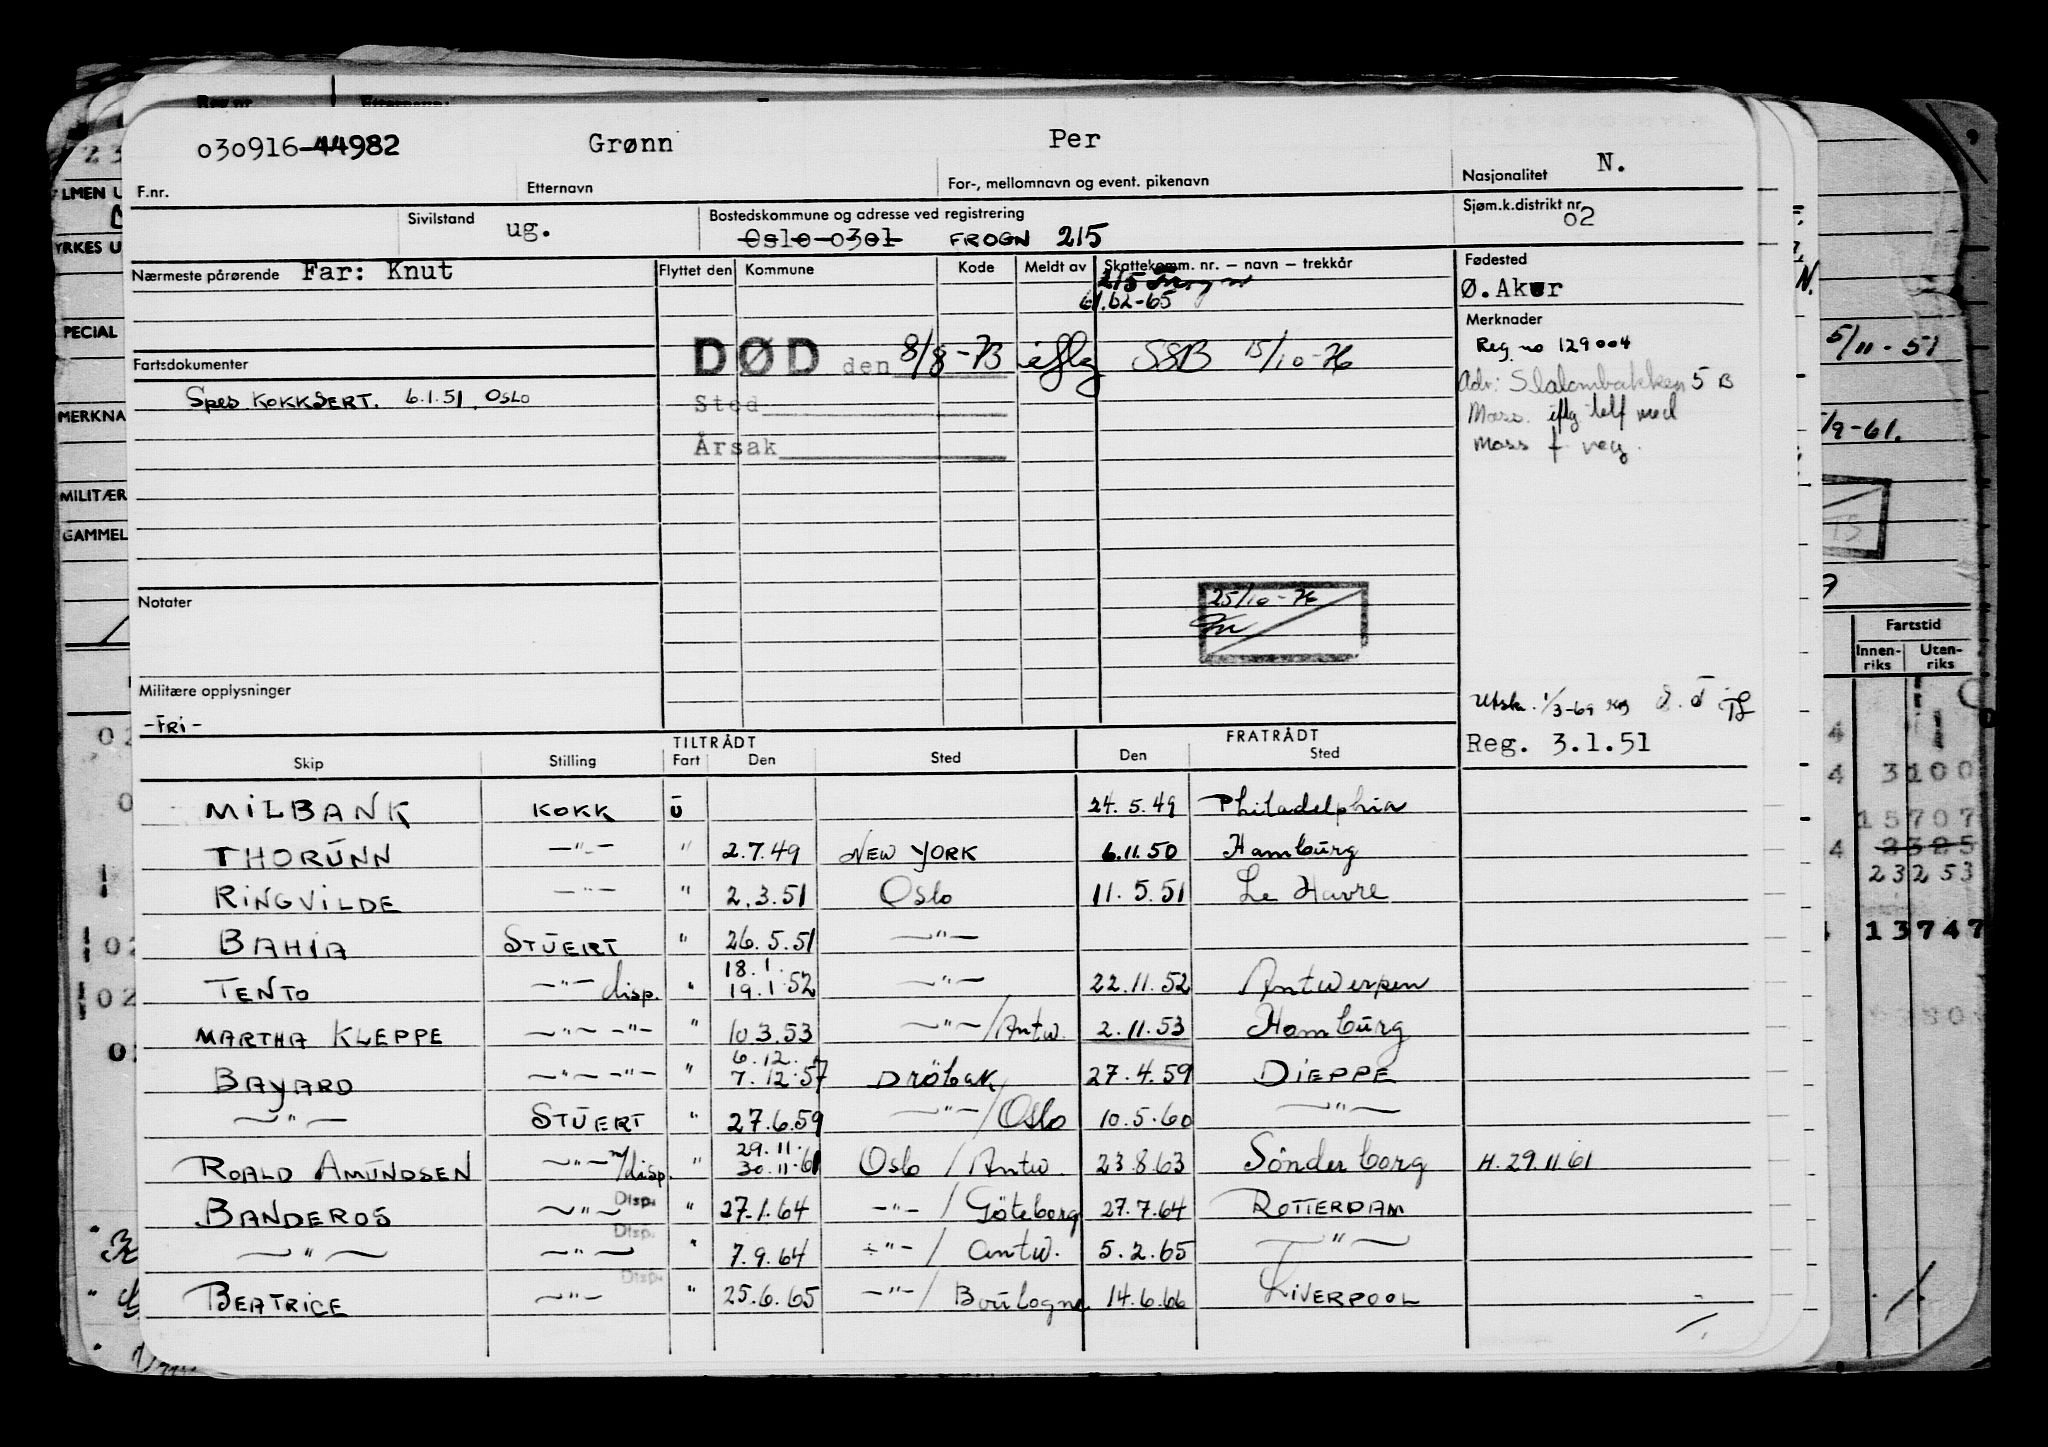 030916-44982 Grønn Per N.
F.nr. Etternavn For-, mellomnavn og event. pikenavn Nasjonalitet
Sivilstand ug. Bostedskommune og adresse ved registrering Sjøm.k.distrikt nr. 02
Oslo 0301 FROGN 215
Nærmeste pårørende Far: Knut Flyttet den Kommune Kode Meldt av Skattekomm. nr. – navn – trekkår Fødested
215 Frogn Ø. Aker
61.62-65
Merknader
Reg no 129004
Fartsdokumenter DØD den 8/8-73 iflg SSB 15/10-76
Adr: Slalombakken 5 B
Spes KOKKSERT. 6.1.51. OSLO
Sted
Mass. iflg telf med
Årsak
Mass f
25/10-76
Notater
Militære opplysninger
-FRI-
Utsk. 1/3-69
Reg. 3.1.51
TILTRÅDT FRATRÅDT
Skip Stilling Fart Den Sted Den Sted
MILBANK KOKK U 24.5.49 Philadelphia
THORUNN —"— " 2.7.49 NEW YORK 6.11.50 Hamburg
RINGVILDE —"— " 2.3.51 Oslo 11.5.51 Le Havre
BAHIA STUERT " 26.5.51 —"—
TENTO —"— disp. " 18.1. 19.1.52 —"— 22.11.52 Antwerpen
MARTHA KLEPPE —"— —"— " 10.3.53 —"—/Antw. 2.11.53 Hamburg
BAYARD —"— —"— " 6.12. 7.12.57 Dröbak 27.4.59 DIEPPE
—"— STUERT " 27.6.59 —"—/Oslo 10.5.60 —"—
ROALD AMUNDSEN —"— m/disp. " 29.11. 30.11.61 Oslo / Antw. 23.8.63 Sönderborg H. 29.11.61
BANDEROS —"— Disp. " 27.1.64 —"—/ Göteborg 27.7.64 ROTTERDAM
—"— —"— Disp. " 7.9.64 —"—/ Antw. 5.2.65 —"—
BEATRICE —"— Disp. " 25.6.65 —"—/ Boulogne 14.6.66 LIVERPOOL
YRKES U
PECIAL
MERKNA
MILITÆR
GAMMEL
5/11-51
/9-61.
Fartstid
Innenriks Utenriks
3100
15707
2325
23253
13747